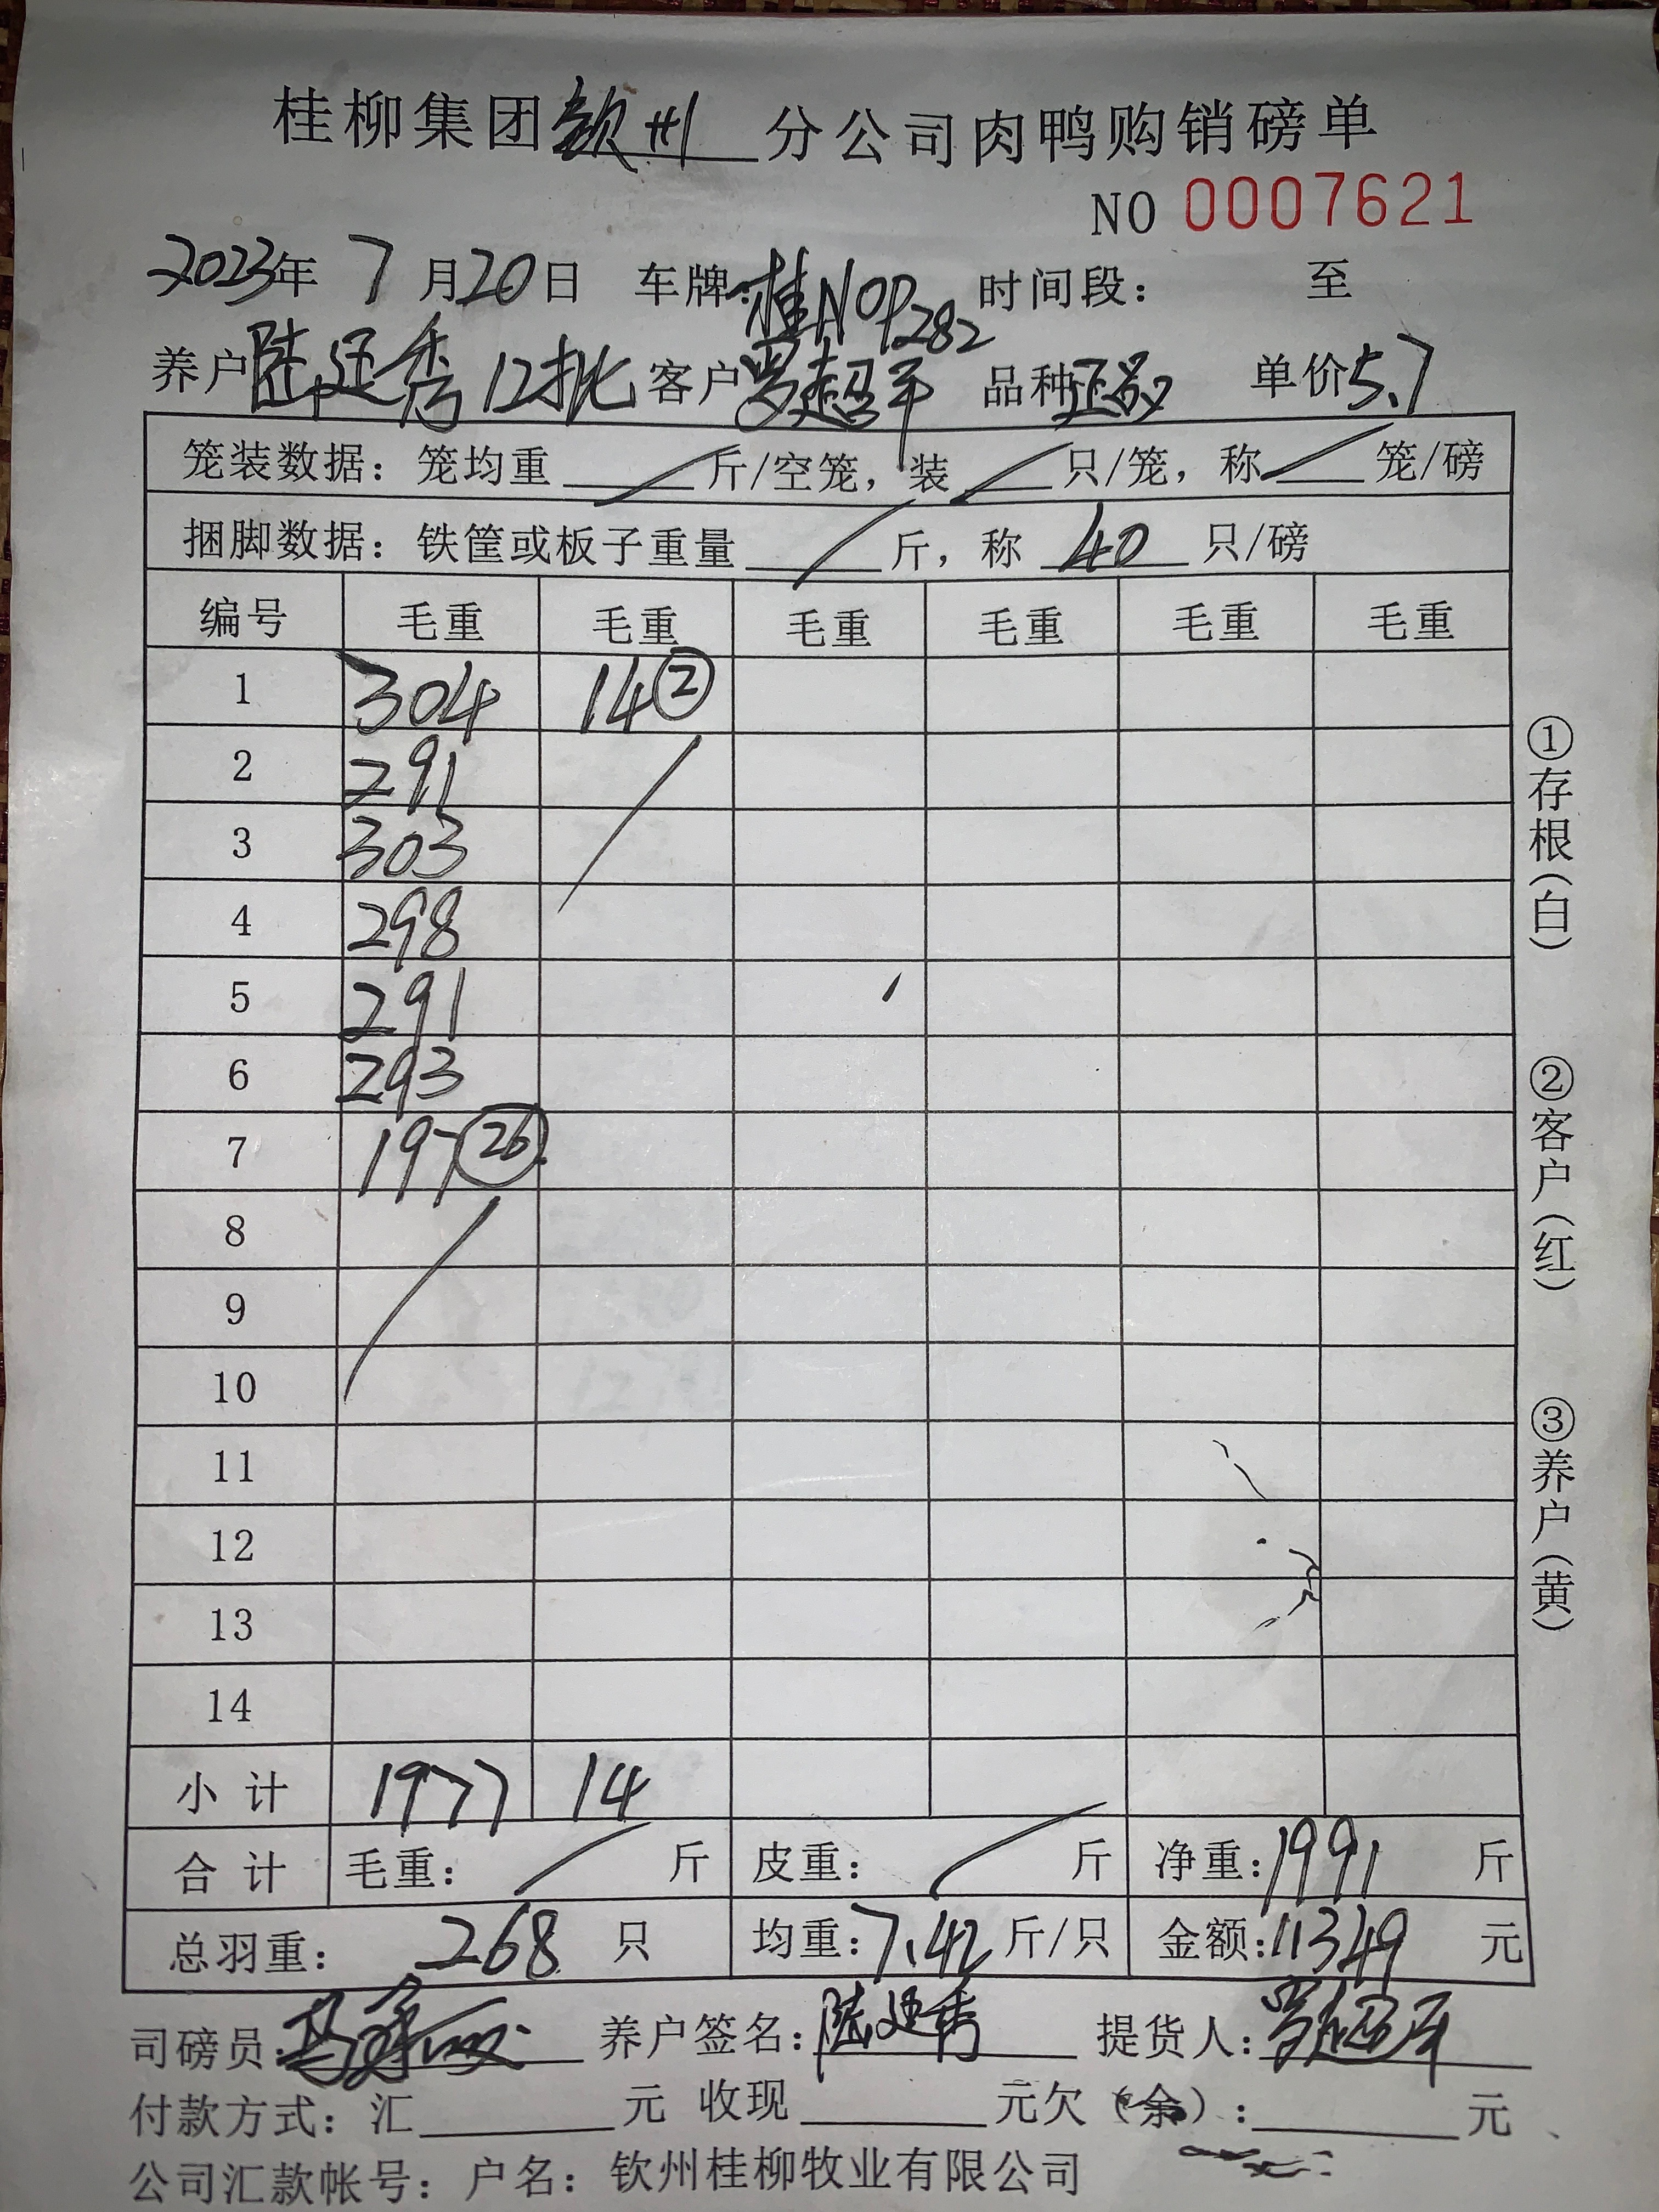 桂柳集团钦州分公司肉鸭购销磅单
NO 0007621
2023年 7月20日 车牌:桂NOP282 时间段: 至
养户陆廷秀12批 客户罗超平 品种 单价5.7
笼装数据: 笼均重 / 斤/空笼, 装 / 只/笼, 称 / 笼/磅
捆脚数据: 铁筐或板子重量 / 斤, 称 40 只/磅
编号 毛重 毛重 毛重 毛重 毛重 毛重
1 304 14②
2 291
3 303
4 298
5 291
6 293
7 197㉖
8
9
10
11
12
13
14
小计 1977 14
合计 毛重: / 斤 皮重: / 斤 净重:1991 斤
总羽重: 268 只 均重:7.42斤/只 金额:11349 元
司磅员: 养户签名:陆廷秀 提货人:罗超平
付款方式: 汇 元 收现 元欠(余): 元
公司汇款帐号: 户名: 钦州桂柳牧业有限公司
①存根(白)
②客户(红)
③养户(黄)